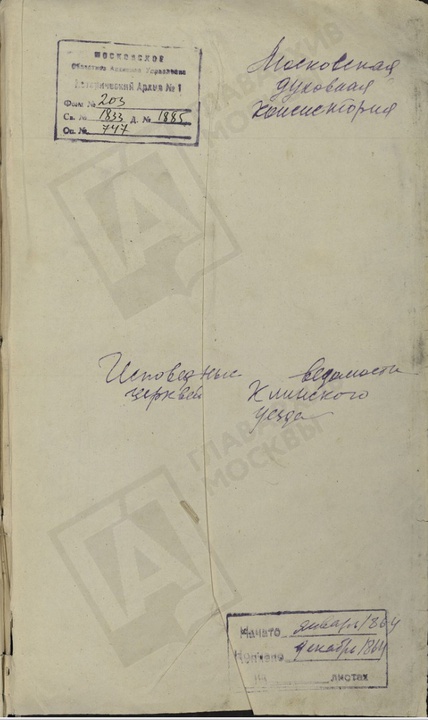 МОСКОВСКОЕ
Областное Архивное Управление
Исторический Архив № 1
Фонд № 203
Св. № 1833 Д. № 1885
Оп. № 747
Московская
духовная
консистория
Исповедные ведомости
церквей Клинского
уезда
ГЛАВАРХИВ
МОСКВЫ
ГЛАВАРХИВ
МОСКВЫ
Начато январь 1864
Кончено декабрь 1864
на листах